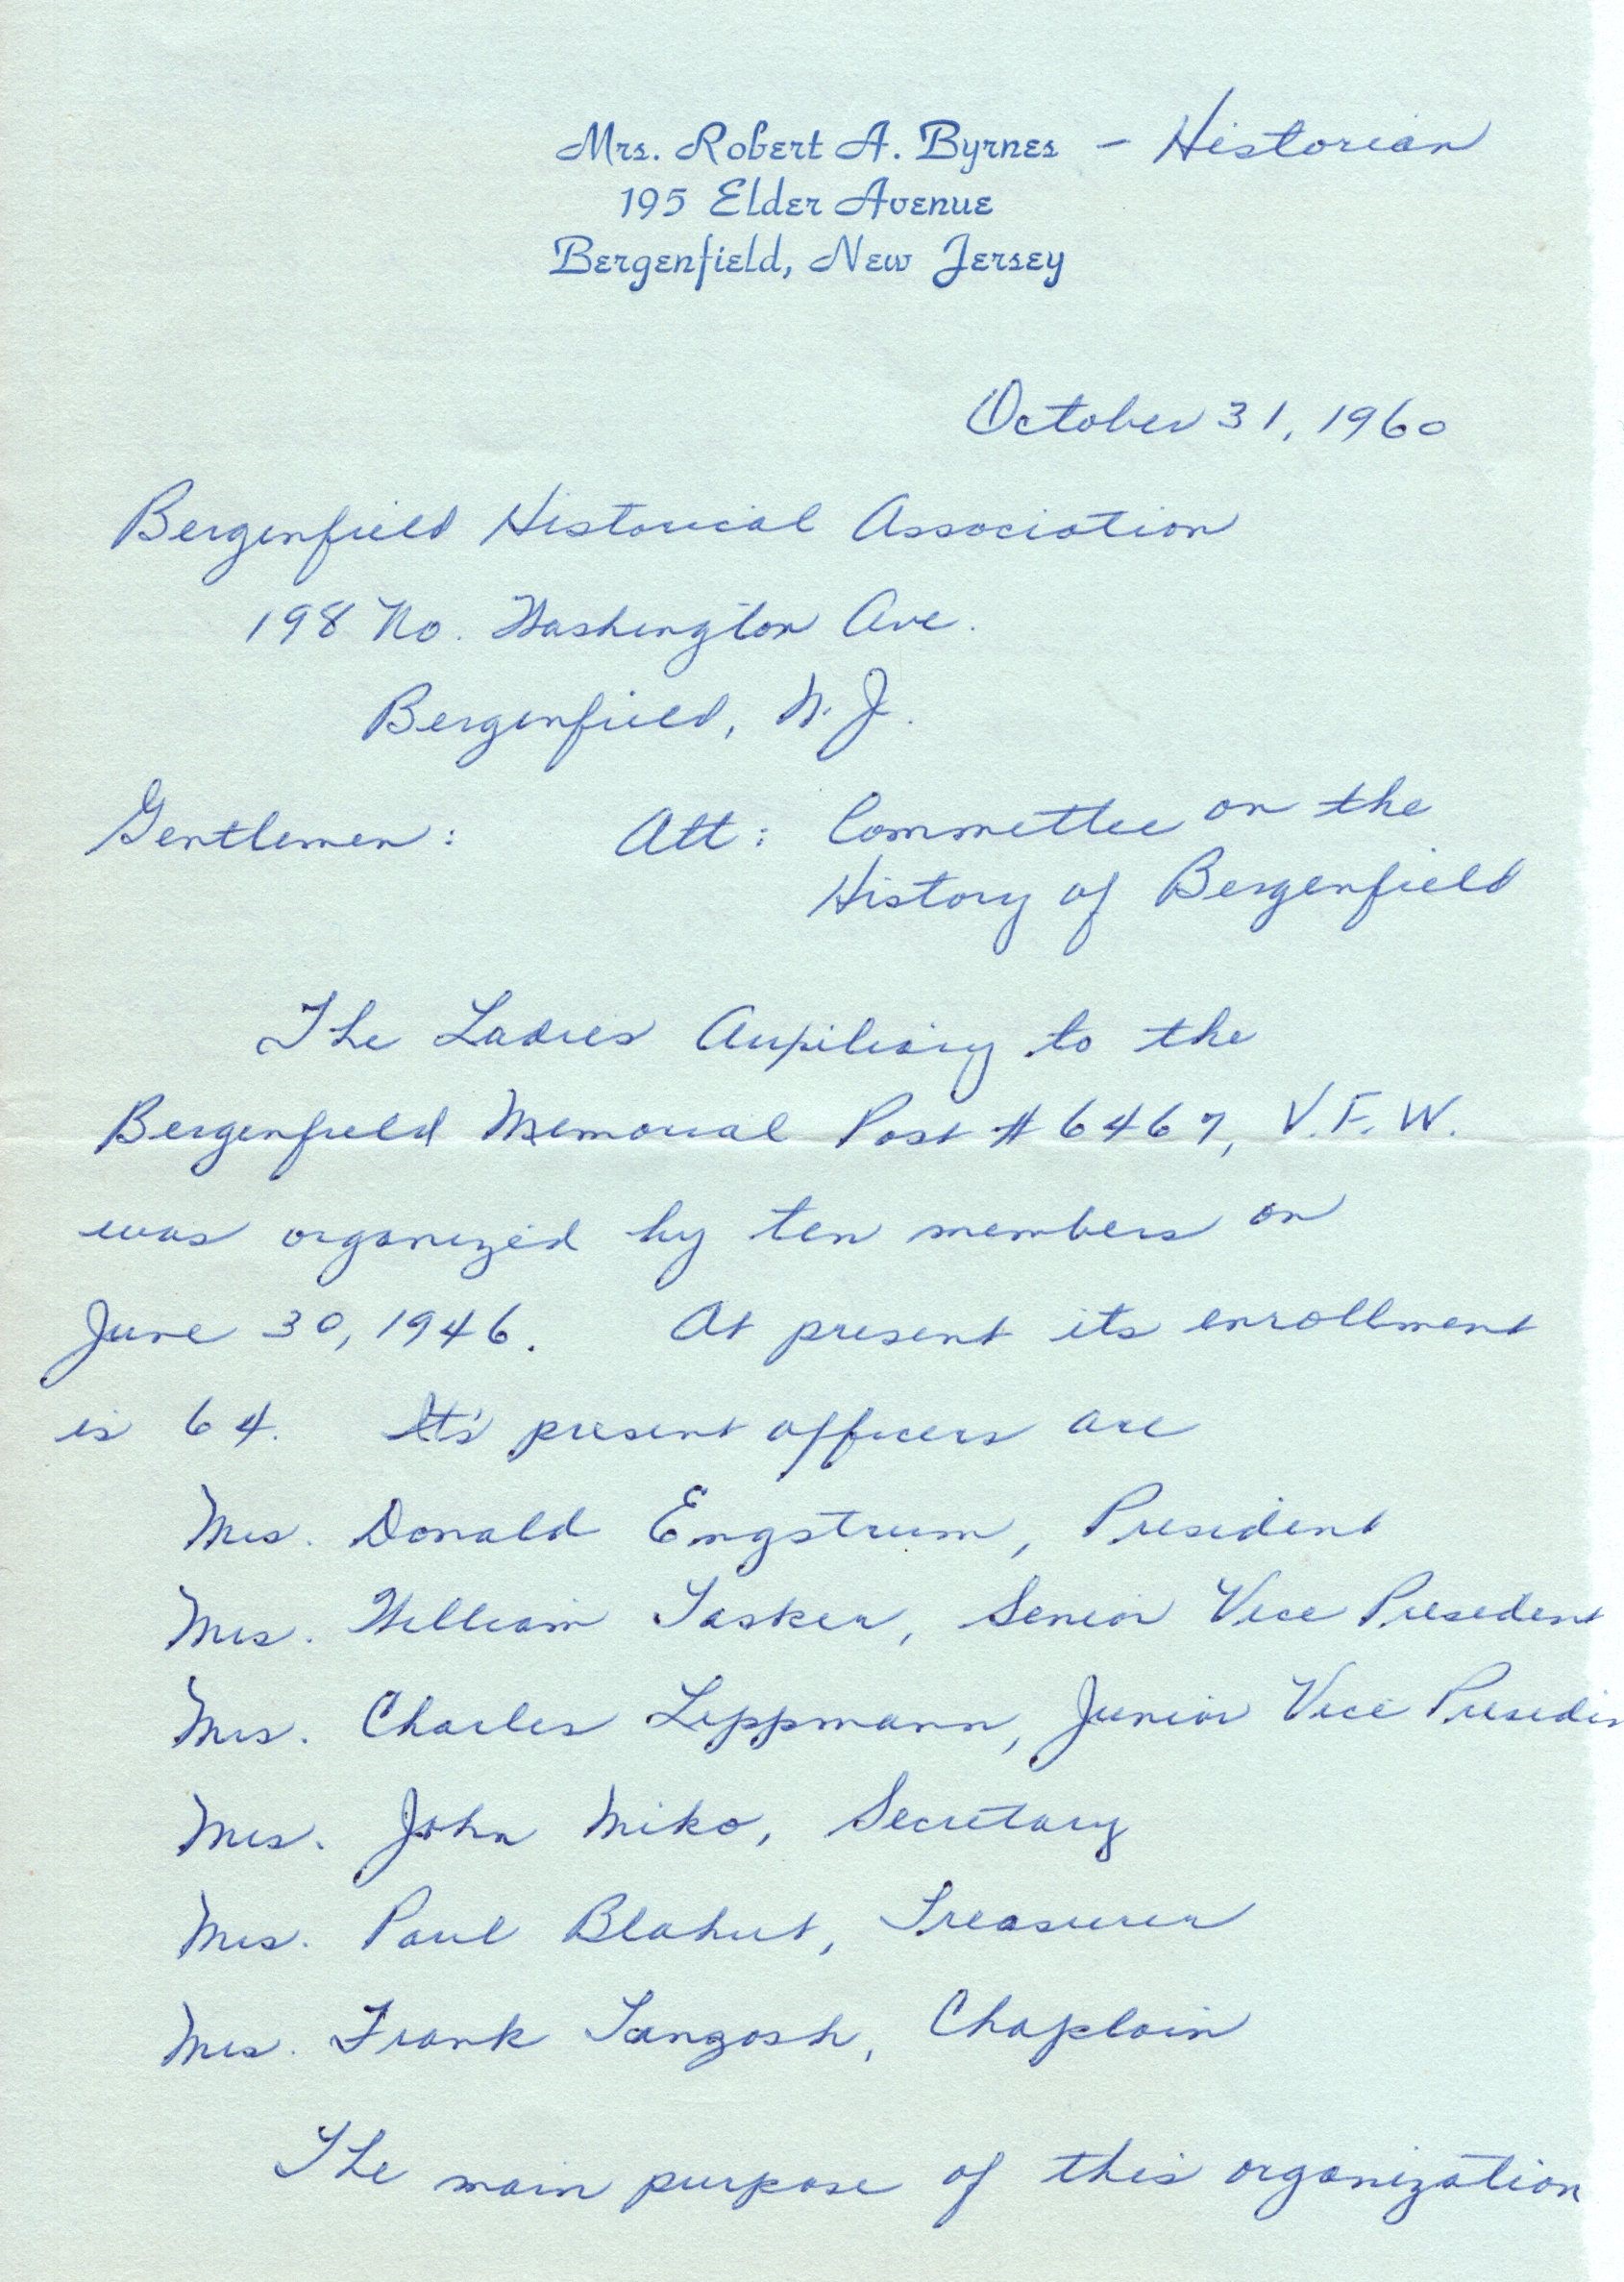 Mrs. Robert A. Byrnes – Historian
195 Elder Avenue
Bergenfield, New Jersey
October 31, 1960
Bergenfield Historical Association
198 No. Washington Ave.
Bergenfield, N.J.
Gentlemen: Att: Committee on the
History of Bergenfield
The Ladies Auxiliary to the
Bergenfield Memorial Post #6467, V.F.W.
was organized by ten members on
June 30, 1946. At present its enrollment
is 64. It's present officers are
Mrs. Donald Engstrum, President
Mrs. William Tasker, Senior Vice President
Mrs. Charles Lippmann, Junior Vice Presiden
Mrs. John Miko, Secretary
Mrs. Paul Blahut, Treasurer
Mrs. Frank Tangosh, Chaplain
The main purpose of this organization